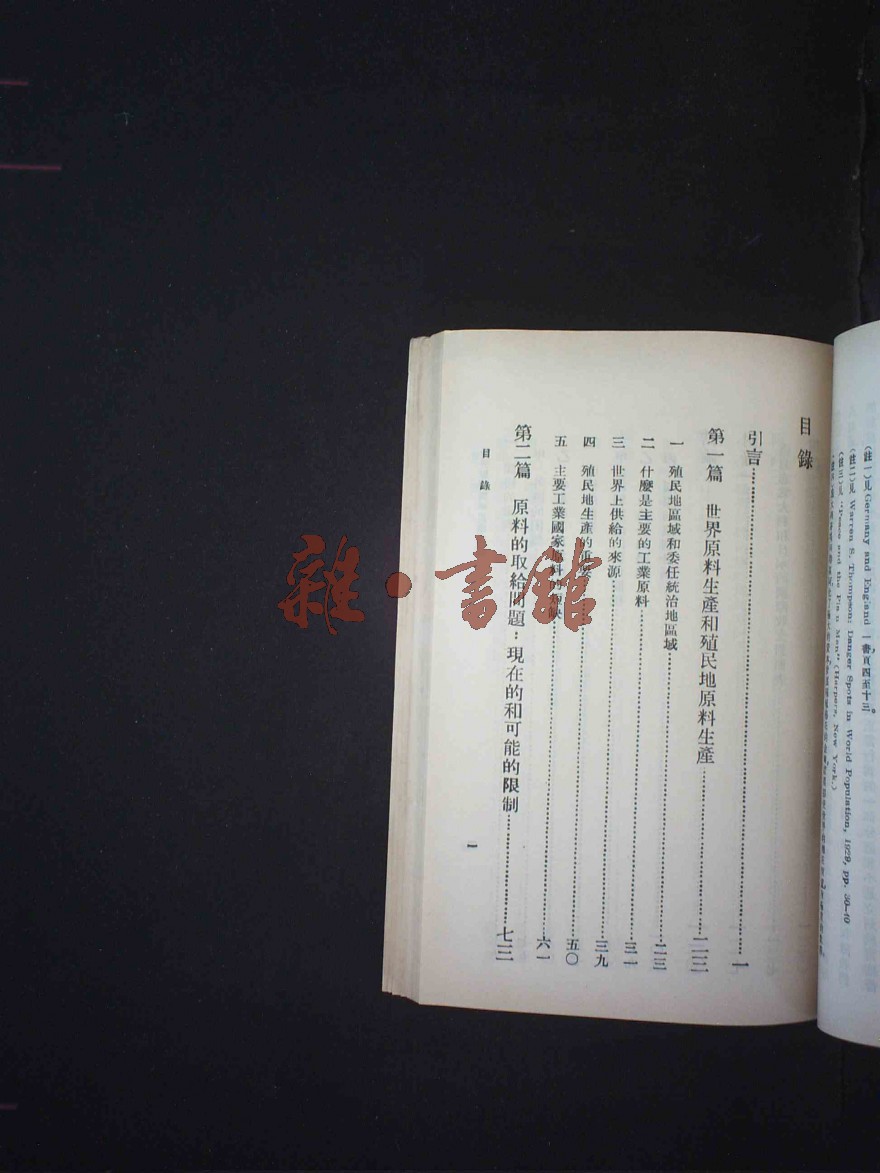 (註一)見 Germany and England 一書,頁四至十三。
(註二)見 Warren S. Thompson: Danger Spots in World Population, 1929, pp.
(註三)見 "Peace and the Plain Man" (Harpers, New York.)
目錄
引言……一
第一篇 世界原料生產和殖民地原料生產……二三
一 殖民地區域和委任統治地區域……二三
二 什麼是主要的工業原料……三一
三 世界上供給的來源……三九
四 殖民地生產的重要……五〇
五 主要工業國家原料的……六一
第二篇 原料的取給問題:現在的和可能的限制……七三
目錄
一
雜·書館